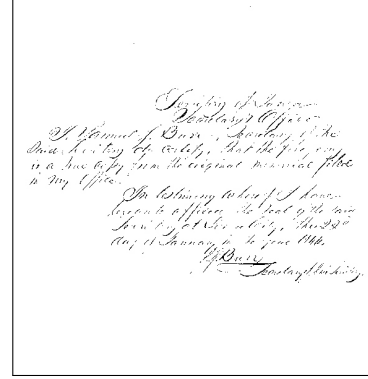 Territory of Iowa
Secretary's Office
I, Samuel J. Burr, Secretary of the
said Territory do certify, that the foregoing
is a true copy from the original memorial filed
in my Office.
In testimony whereof I have
hereunto affixed the seal of the said
Territory at Iowa City, this 22d
day of January in the year 1846.
S J Burr
Secretary of the Territory